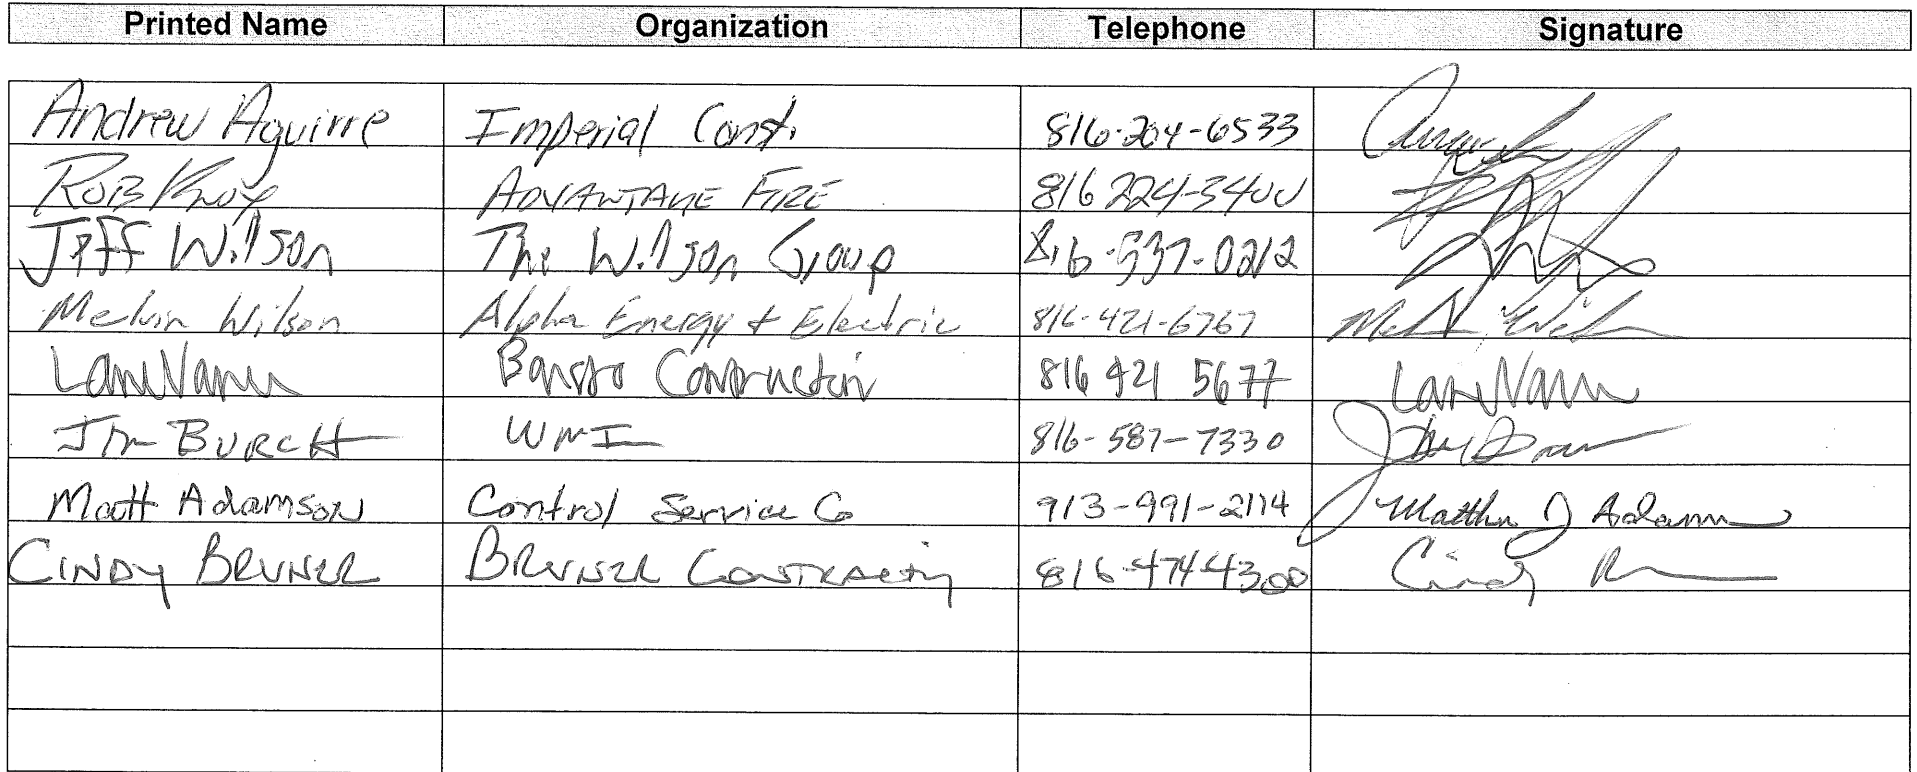 Printed Name Organization Telephone Signature
Andrew Aguirre Imperial Const. 816-204-6533
Rob Knox ADVANTAGE FIRE 816 224-3400
Jeff Wilson The Wilson Group 816-537-0212
Melvin Wilson Alpha Energy + Electric 816-421-6767 Melvin Wilson
816 421 5677
Jim BURCH WMI 816-587-7330
Matt Adamson Control Service Co 913-991-2114 Matthew J Adamson
CINDY BRUNER BRUNER Contracting 816-474-4300 Cindy